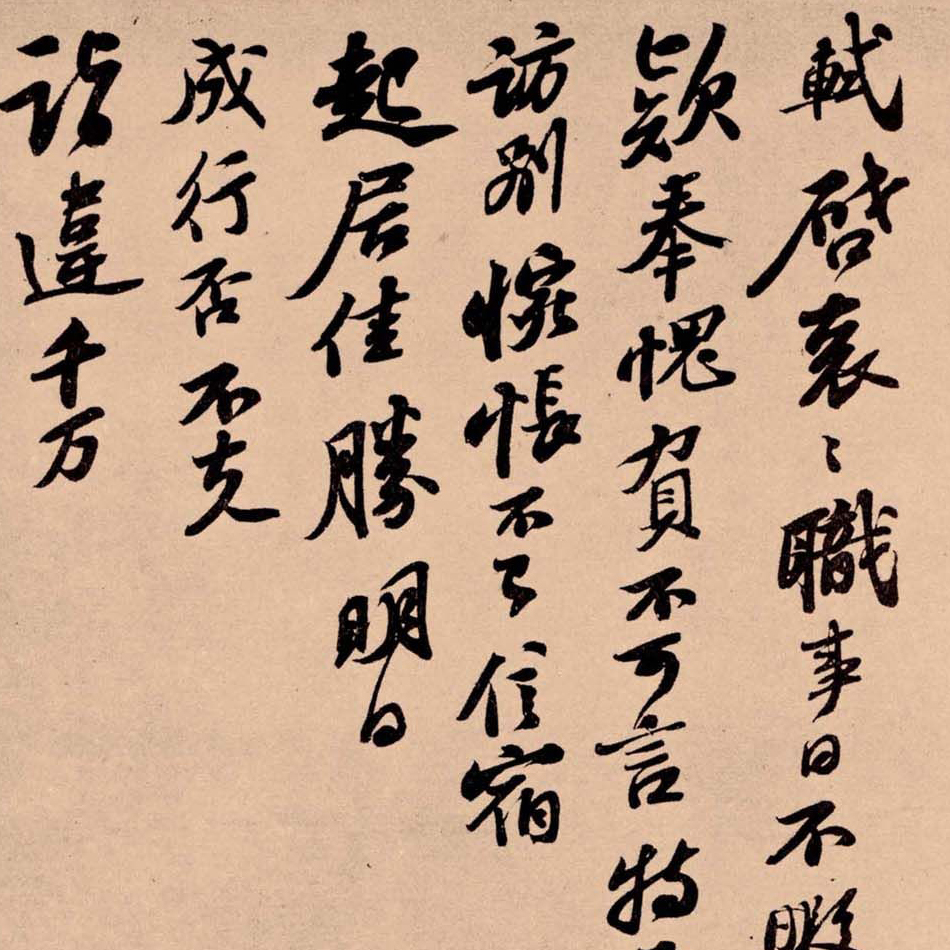 軾啓袞〻職事日不暇
欵奉愧負不可言特
訪別惋悵不已信宿
起居佳勝明日
成行否不克
詣違千万